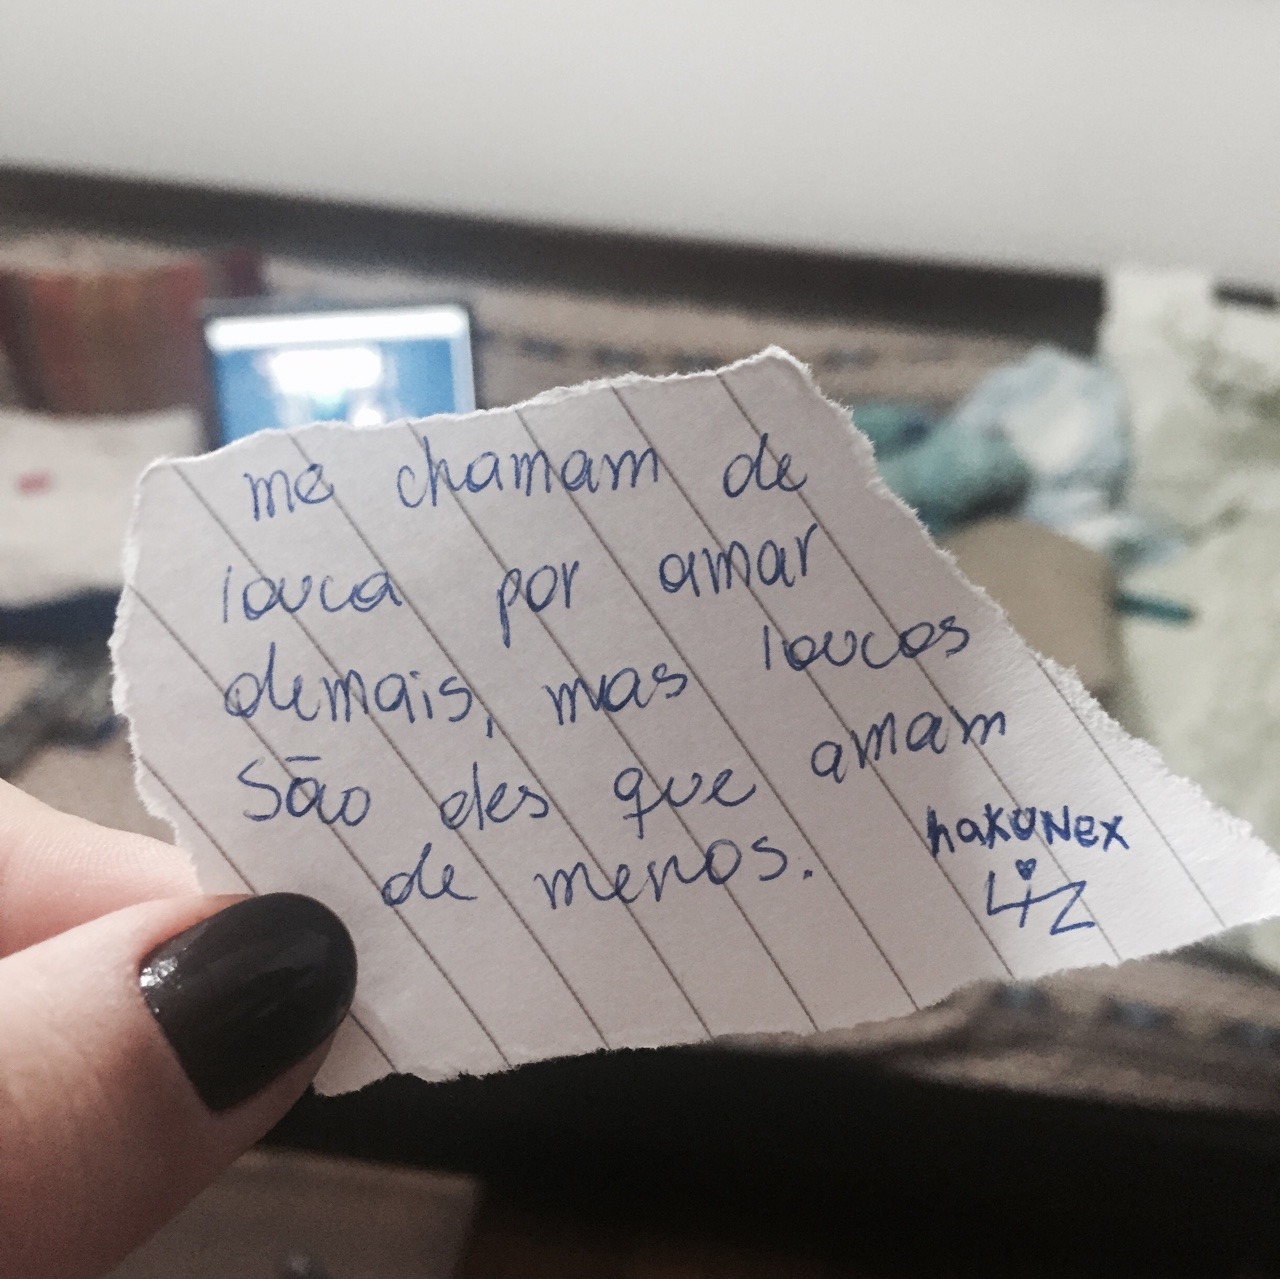 me chamam de
louca por amar
demais, mas loucos
são eles que amam
de menos.
hakunex
Liz